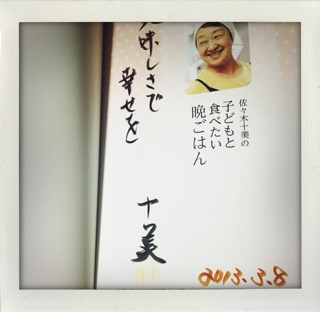 佐々木十美の
子どもと
食べたい
晩ごはん
味しさで
幸せを
十美
2013.3.8